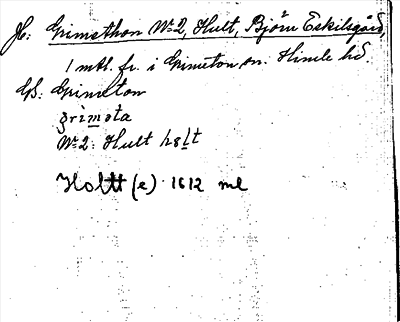 Jb: Grimethon No 2, Hult, Björn Eskilsgård,
1 mtl. fr. i Grimeton sn. Himle hd.
Gb: Grimeton
grimɵta
No 2: Hult hɵlt
Holtt (e) 1612 ml